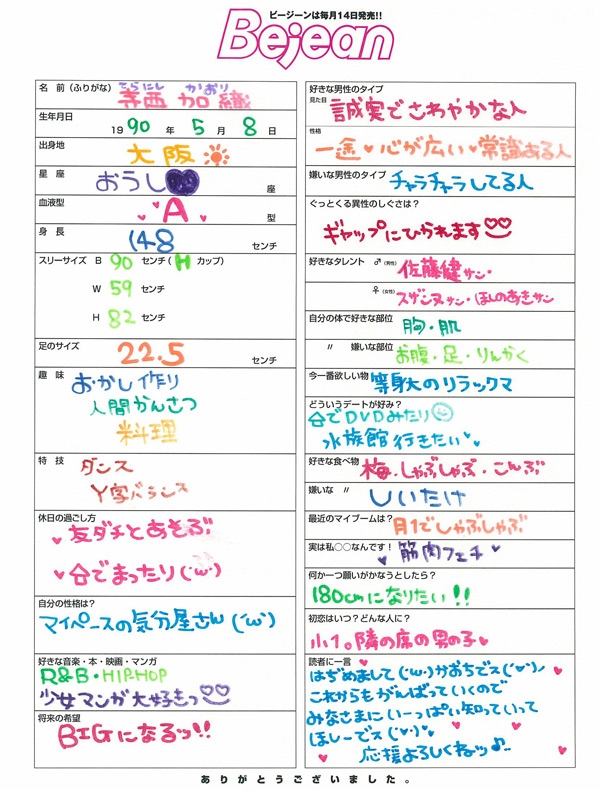 ビージーンは毎月14日発売!!
Bejean
名 前 (ふりがな) てらにし かおり
寺西 加織
生年月日
1990 年 5 月 8 日
出身地
大阪
星 座
おうし 座
血液型
A 型
身 長
148 センチ
スリーサイズ B 90 センチ( H カップ)
W 59 センチ
H 82 センチ
足のサイズ
22.5 センチ
趣 味
おかし作り
人間かんさつ
料理
特 技
ダンス
Y字バランス
休日の過ごし方
友ダチとあそぶ
台でまったり(´ω`)
自分の性格は?
マイペースの気分屋さん(´ω`)
好きな音楽・本・映画・マンガ
R&B・HIP-HOP
少女マンガ大好きっ
将来の希望
BIGになるッ!!
好きな男性のタイプ
見た目
誠実でさわやかな人
性格
一途♥心が広い♥常識ある人
嫌いな男性のタイプ
チャラチャラしてる人
ぐっとくる異性のしぐさは?
ギャップにひかれます
好きなタレント ♂(男性) 佐藤健サン・
♀(女性) スザンヌサン・ほしのあきサン
自分の体で好きな部位
胸・肌
〃 嫌いな部位
お腹・足・りんかく
今一番欲しい物
等身大のリラックマ
どういうデートが好み?
台でDVDみたり
水族館行きたい♥
好きな食べ物
梅・しゃぶしゃぶ・こんぶ
嫌いな 〃
しいたけ
最近のマイブームは?
月1でしゃぶしゃぶ
実は私○○なんです!
♥筋肉フェチ♥
何か一つ願いがかなうとしたら?
180cmになりたい!!
初恋はいつ?どんな人に?
小1。隣の席の男の子♥
読者に一言
はぢめまして(´ω`)かおちでス(´▽`)ノ
これからもがんばっていくので
みなさまにいーっぱい知っていって
ほしーでス(´▽`)♥
応援よろしくねッ♪
ありがとうございました。